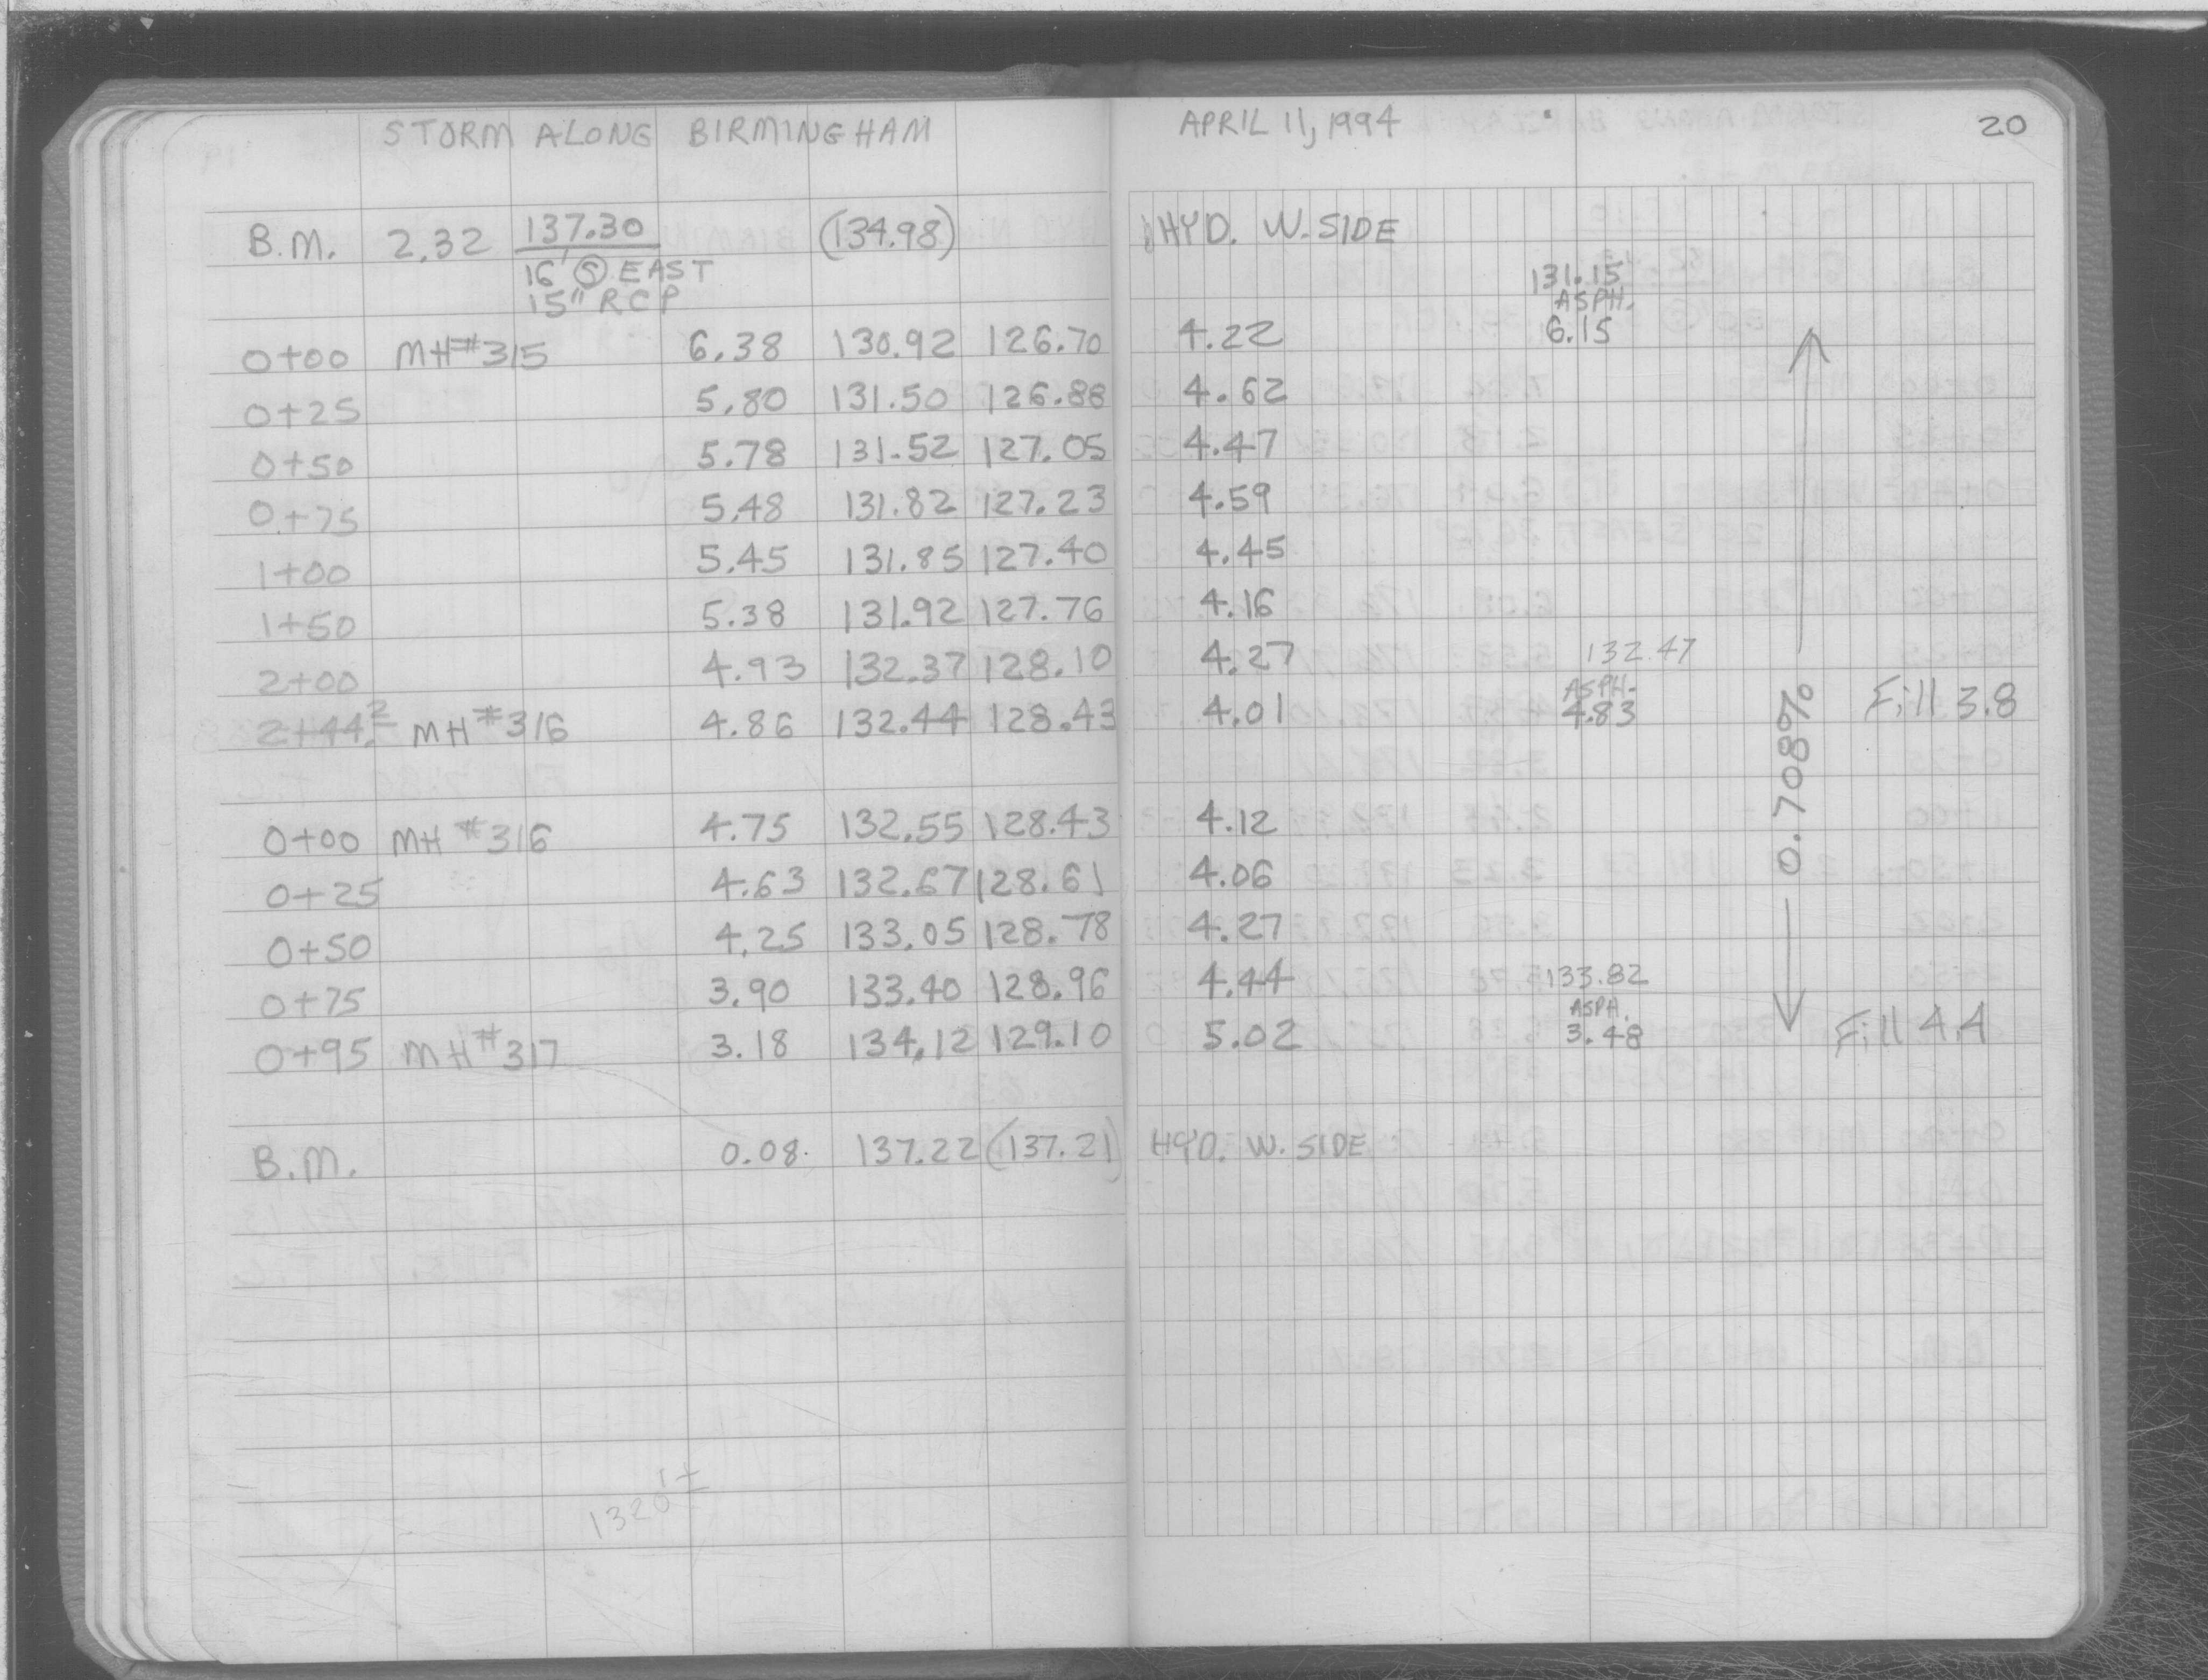 STORM ALONG BIRMINGHAM APRIL 11, 1994 20
B.M. 2.32 137.30 (134.98) HYD. W. SIDE
16' Ⓢ EAST 131.15
15" RCP ASPH.
0+00 MH#315 6.38 130.92 126.70 4.22 6.15
0+25 5.80 131.50 126.88 4.62
0+50 5.78 131.52 127.05 4.47
0+75 5.48 131.82 127.23 4.59
1+00 5.45 131.85 127.40 4.45
1+50 5.38 131.92 127.76 4.16
2+00 4.93 132.37 128.10 4.27 132.47
ASPH.
2+44.2 MH#316 4.86 132.44 128.43 4.01 4.83 Fill 3.8
0.708%
0+00 MH#316 4.75 132.55 128.43 4.12
0+25 4.63 132.67 128.61 4.06
0+50 4.25 133.05 128.78 4.27
0+75 3.90 133.40 128.96 4.44 133.82
ASPH.
0+95 MH#317 3.18 134.12 129.10 5.02 3.48 Fill 4.4
B.M. 0.08 137.22 (137.21) HYD. W. SIDE
1320'±